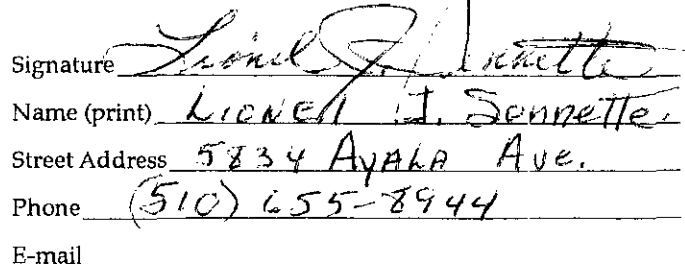 Signature Lionel J. Sennette
Name (print) Lionell J. Sennette.
Street Address 5834 Ayala Ave.
Phone (510) 655-8944
E-mail